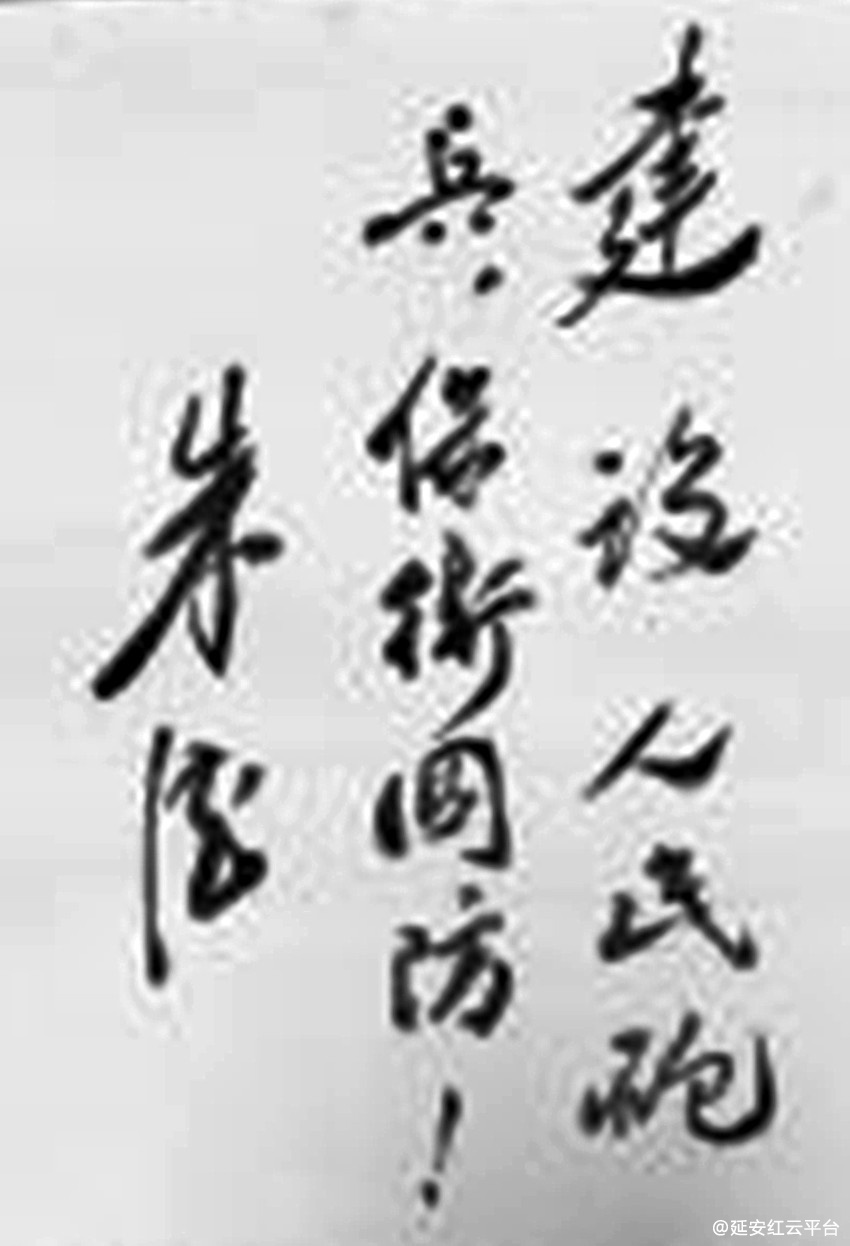 建设人民砲
兵,保衛国防!
朱德
@延安红云平台